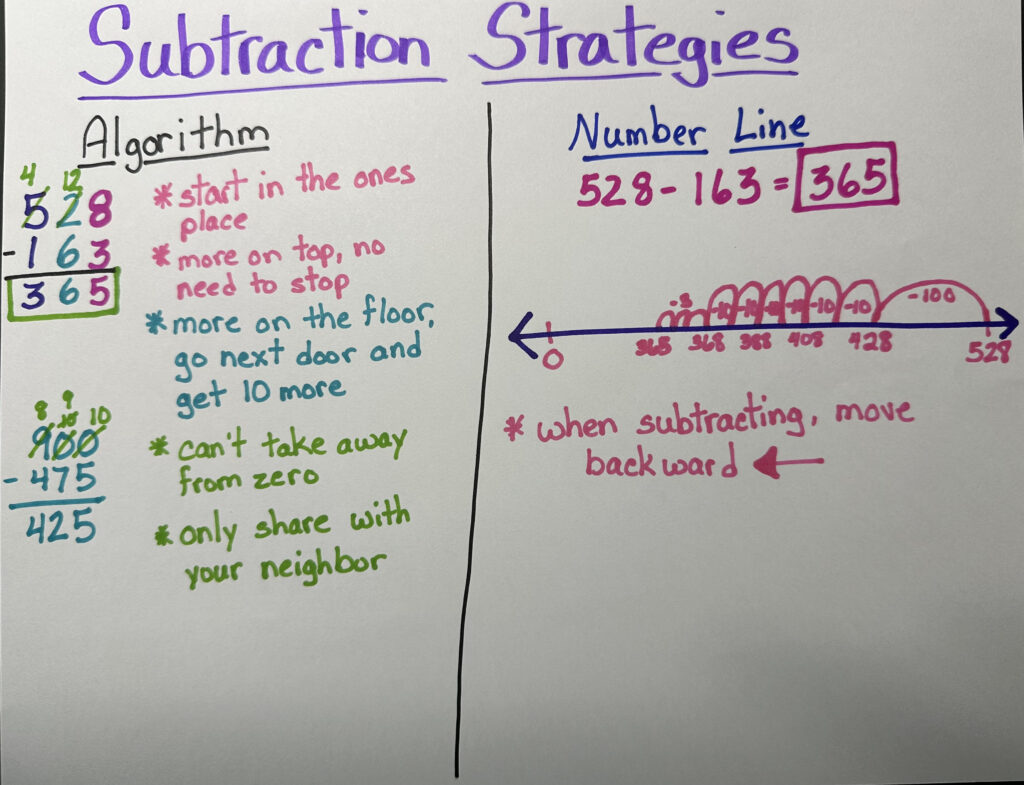 Subtraction Strategies
Algorithm
4 12
528
- 163
365
* start in the ones
place
* more on top, no
need to stop
* more on the floor,
go next door and
get 10 more
8 9
10 10
900
- 475
425
* can't take away
from zero
* only share with
your neighbor
Number Line
528 - 163 = 365
-3 -10 -10 -10 -10 -10 -100
0 365 368 388 408 428 528
* when subtracting, move
backward